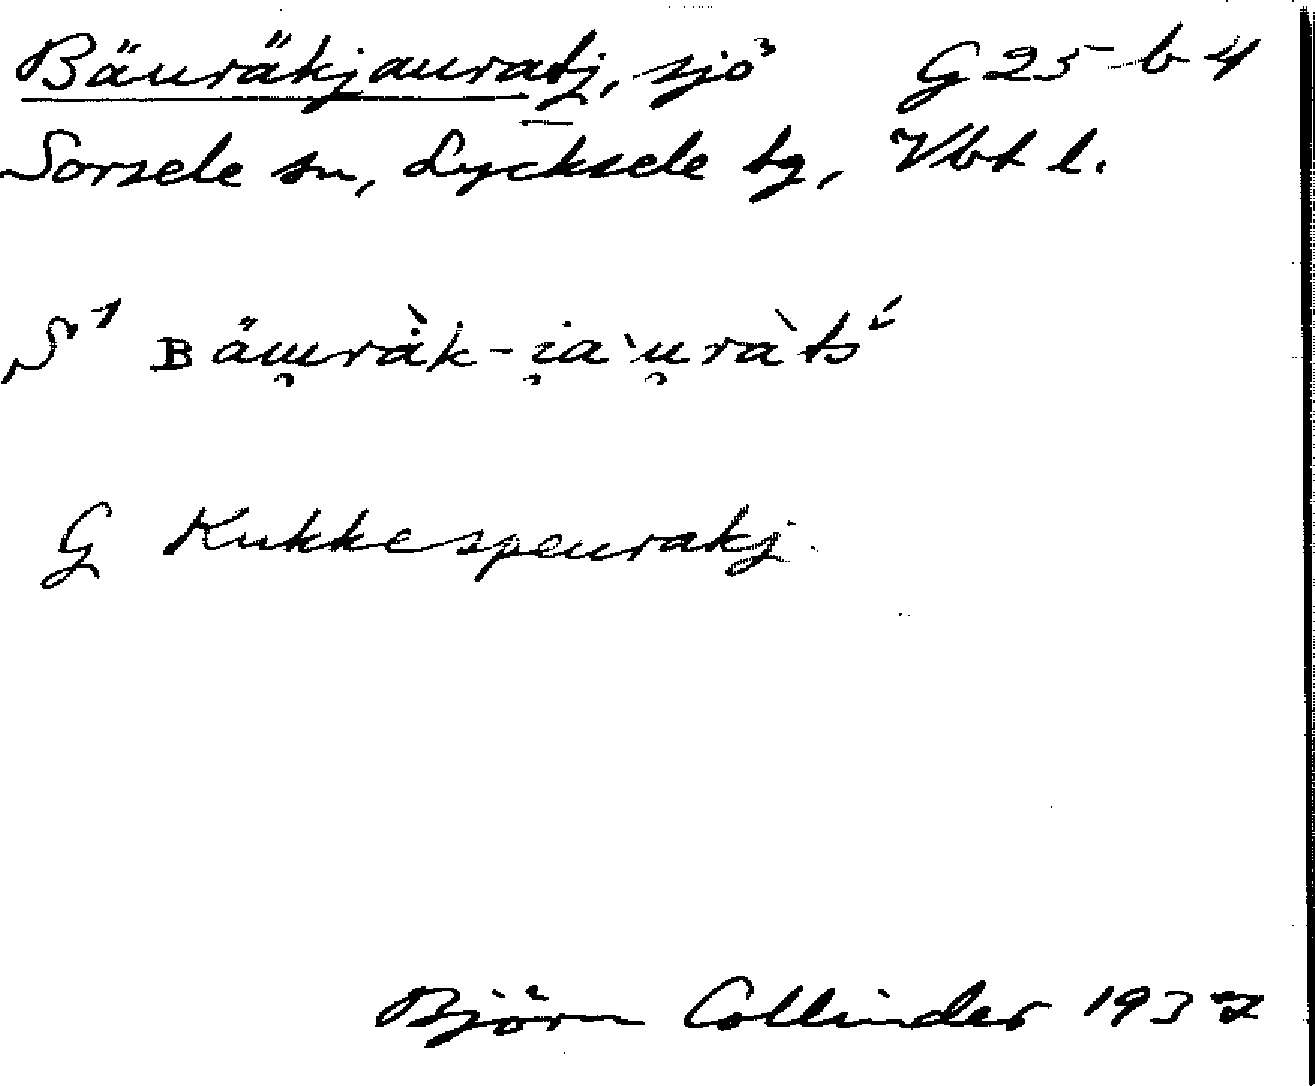 Bäuräkjauratj, sjö G 25 - b 4
Sorsele sn, Lycksele tg, Vbt l.
S¹ ʙäu̯rȧ̀k-i̯a`u̯ràts´
G Kukkespeurakj.
Björn Collinder 1937